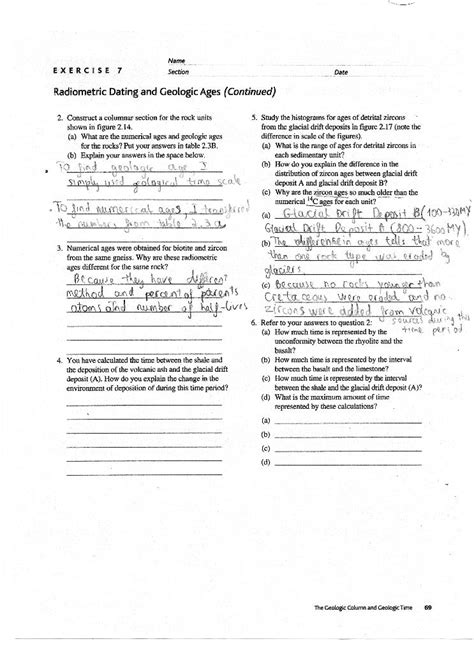 Name
EXERCISE 7
Section
Date
Radiometric Dating and Geologic Ages (Continued)
2. Construct a columnar section for the rock units
shown in figure 2.14.
(a) What are the numerical ages and geologic ages
for the rocks? Put your answers in table 2.3B.
(b) Explain your answers in the space below.
To find geologic age I
simply used geological time scale
To find numerical ages, I transferred
the numbers from table 2.3a
3. Numerical ages were obtained for biotite and zircon
from the same gneiss. Why are these radiometric
ages different for the same rock?
Because they have different
method and percent of parents
atoms and number of half-lives
4. You have calculated the time between the shale and
the deposition of the volcanic ash and the glacial drift
deposit (A). How do you explain the change in the
environment of deposition of during this time period?
5. Study the histograms for ages of detrital zircons
from the glacial drift deposits in figure 2.17 (note the
difference in scale of the figures).
(a) What is the range of ages for detrital zircons in
each sedimentary unit?
(b) How do you explain the difference in the
distribution of zircon ages between glacial drift
deposit A and glacial drift deposit B?
(c) Why are the zircon ages so much older than the
numerical 14C ages for each unit?
(a) Glacial Drift Deposit B (100-3300MY)
Glacial Drift Deposit A (800-3600MY)
(b) The difference in ages tells that more
than one rock type was eroded by
glaciers.
(c) Because no rocks younger than
Cretaceous were eroded and no
zircons were added from volcanic
sources during this
time period
6. Refer to your answers to question 2:
(a) How much time is represented by the
unconformity between the rhyolite and the
basalt?
(b) How much time is represented by the interval
between the basalt and the limestone?
(c) How much time is represented by the interval
between the shale and the glacial drift deposit (A)?
(d) What is the maximum amount of time
represented by these calculations?
(a)
(b)
(c)
(d)
The Geologic Column and Geologic Time 69